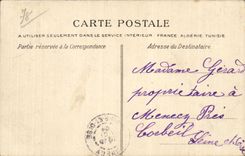 CARTE POSTALE
A UTILISER SEULEMENT DANS LE SERVICE INTÉRIEUR FRANCE ALGÉRIE TUNISIE
Partie réservée à la Correspondance
Adresse du Destinataire
Madame Gérard
propriétaire à
Menecy Près
Corbeil
Seine et Oise